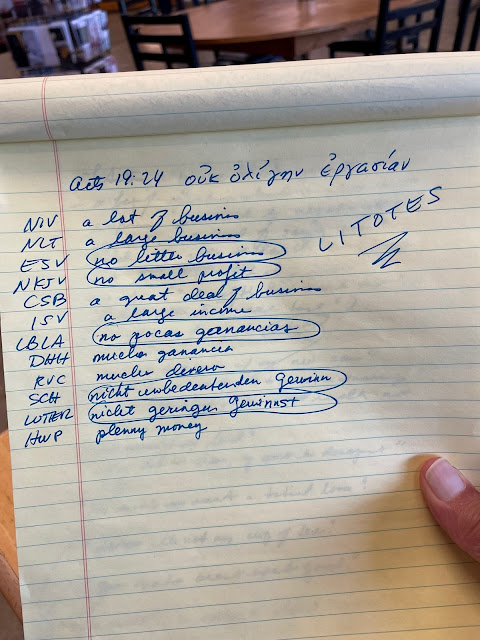 Acts 19:24 οὐκ ὀλίγην ἐργασίαν
LITOTES
NIV a lot of business
NLT a large business
ESV no little business
NKJV no small profit
CSB a great deal of business
ISV a large income
LBLA no pocas ganancias
DHH mucha ganancia
RVC mucho dinero
SCH nicht unbedeutenden Gewinn
LUTER nicht geringen Gewinnst
HWP plenny money